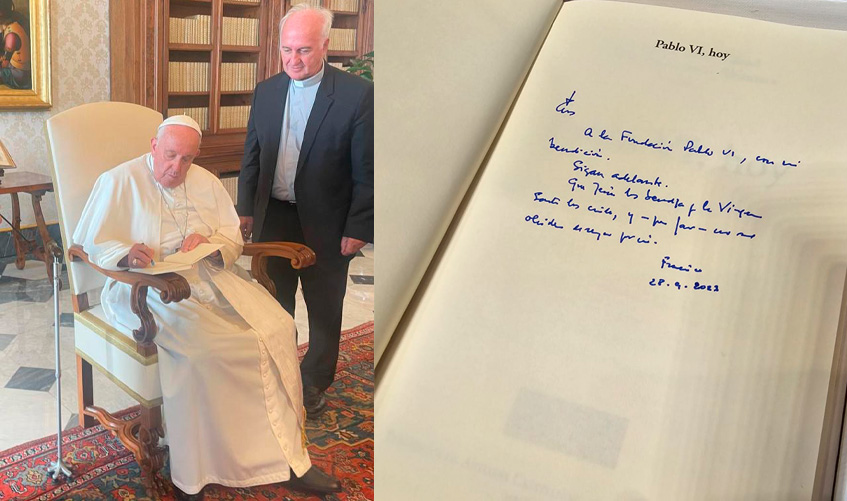 Pablo VI, hoy
A la Fundación Pablo VI, con mi
bendición.
Sigan adelante.
Que Jesús los bendiga y la Virgen
Santa los cuide, y por favor no se
olviden de rezar por mí.
Francisco
28.9.2023